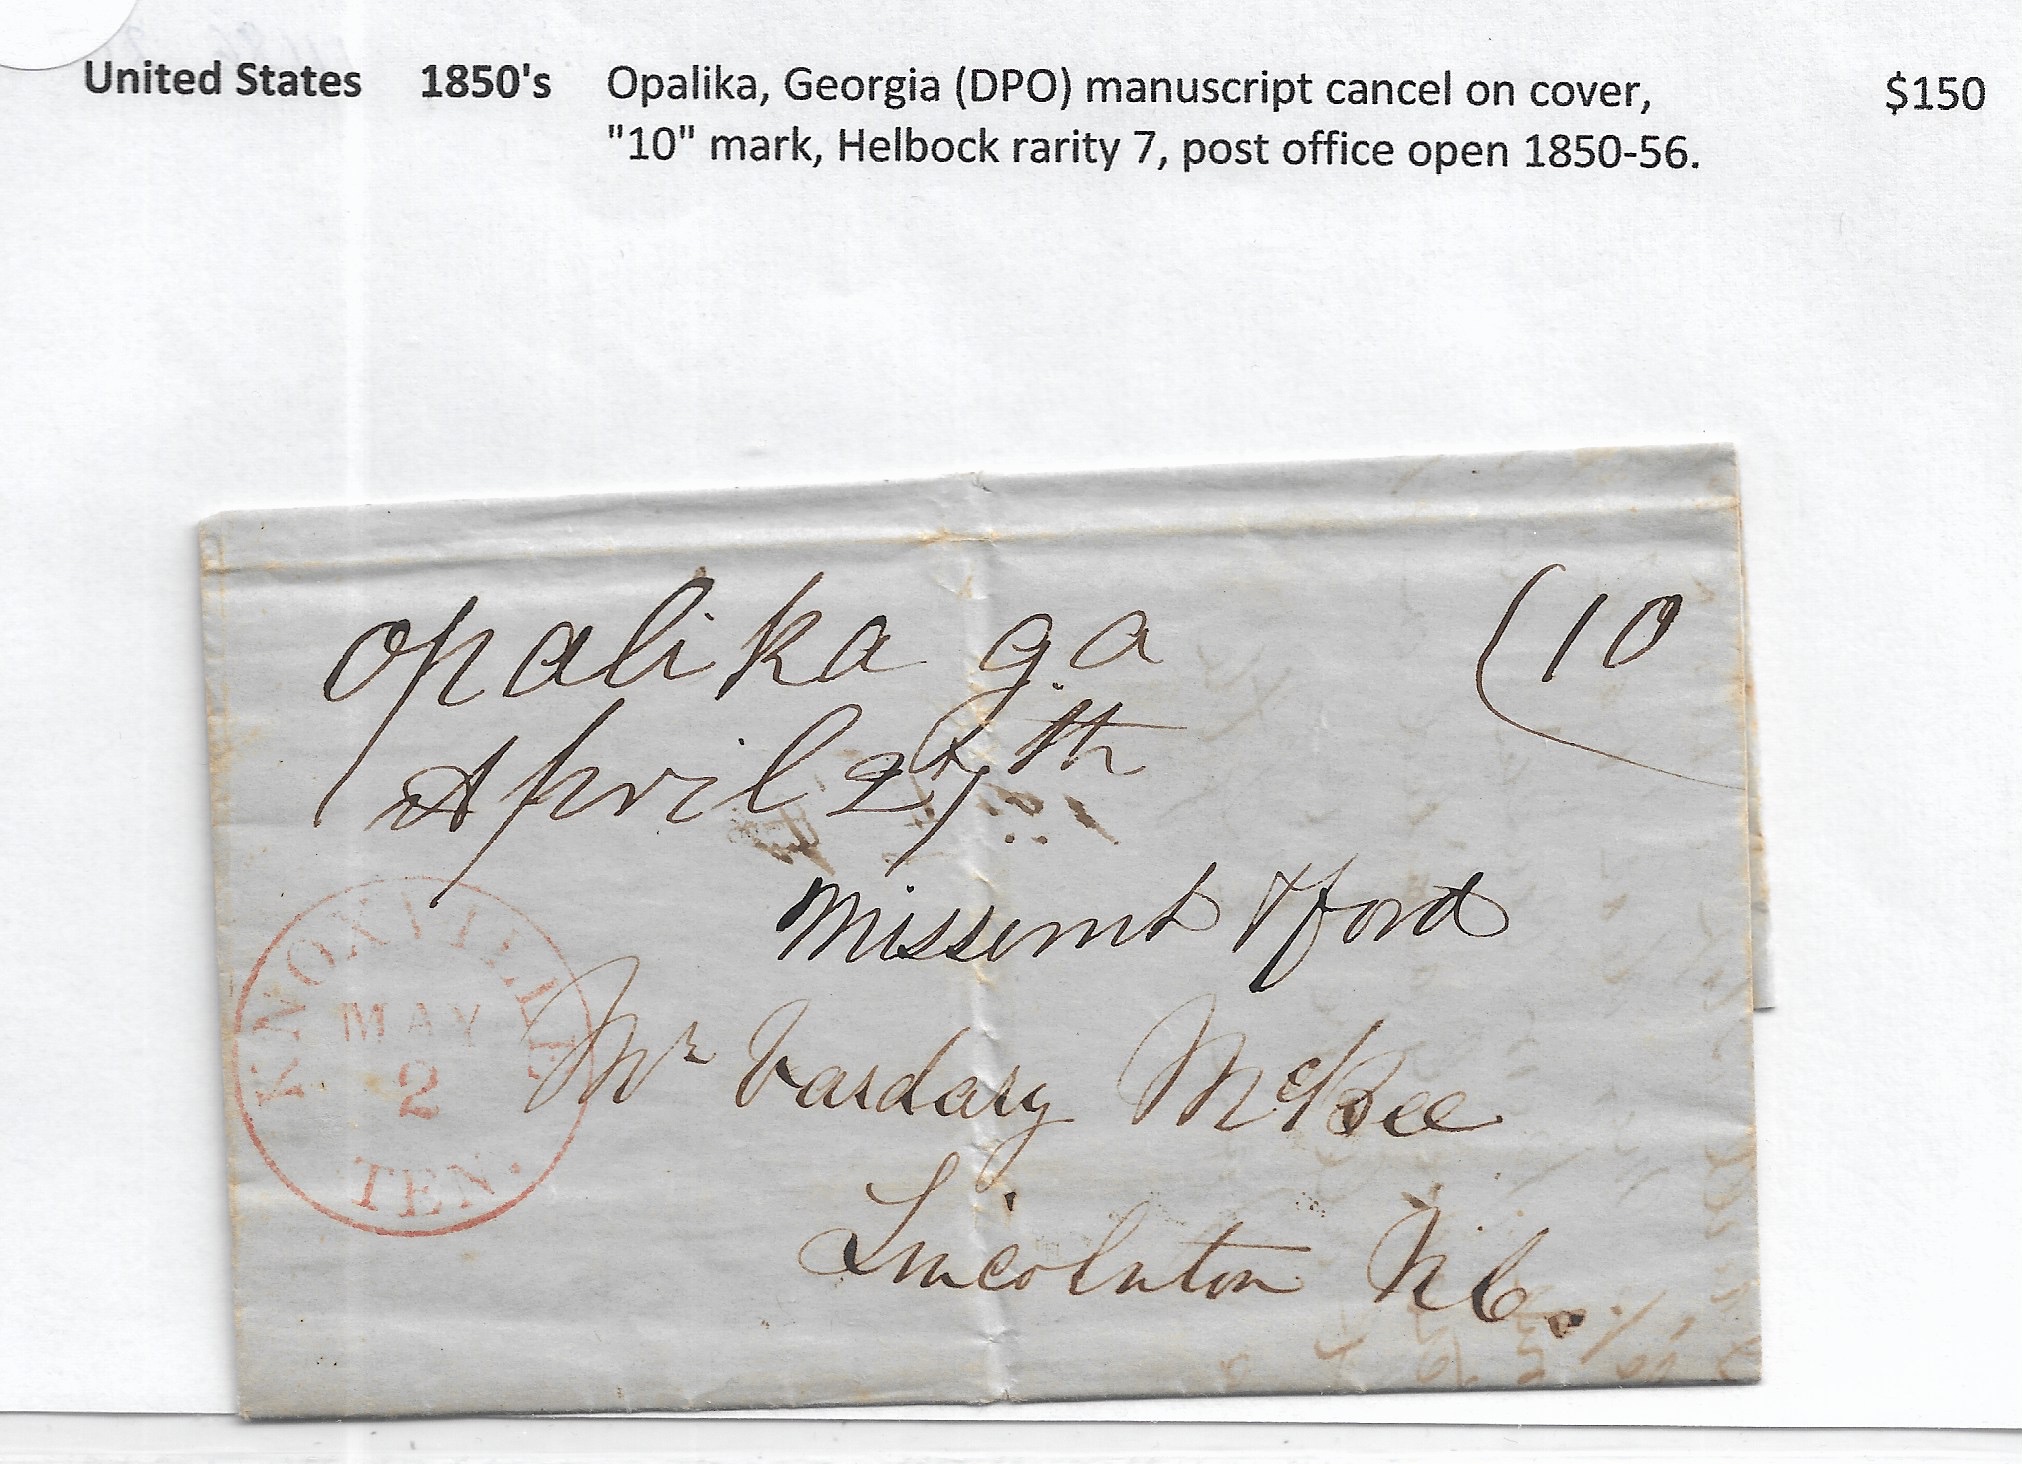 United States 1850's Opalika, Georgia (DPO) manuscript cancel on cover, $150
"10" mark, Helbock rarity 7, post office open 1850-56.
Opalika ga (10
April 27th
Missent & ford
KNOXVILLE
MAY
2
TEN.
Mr Vardary McBee
Lincolnton N.C.